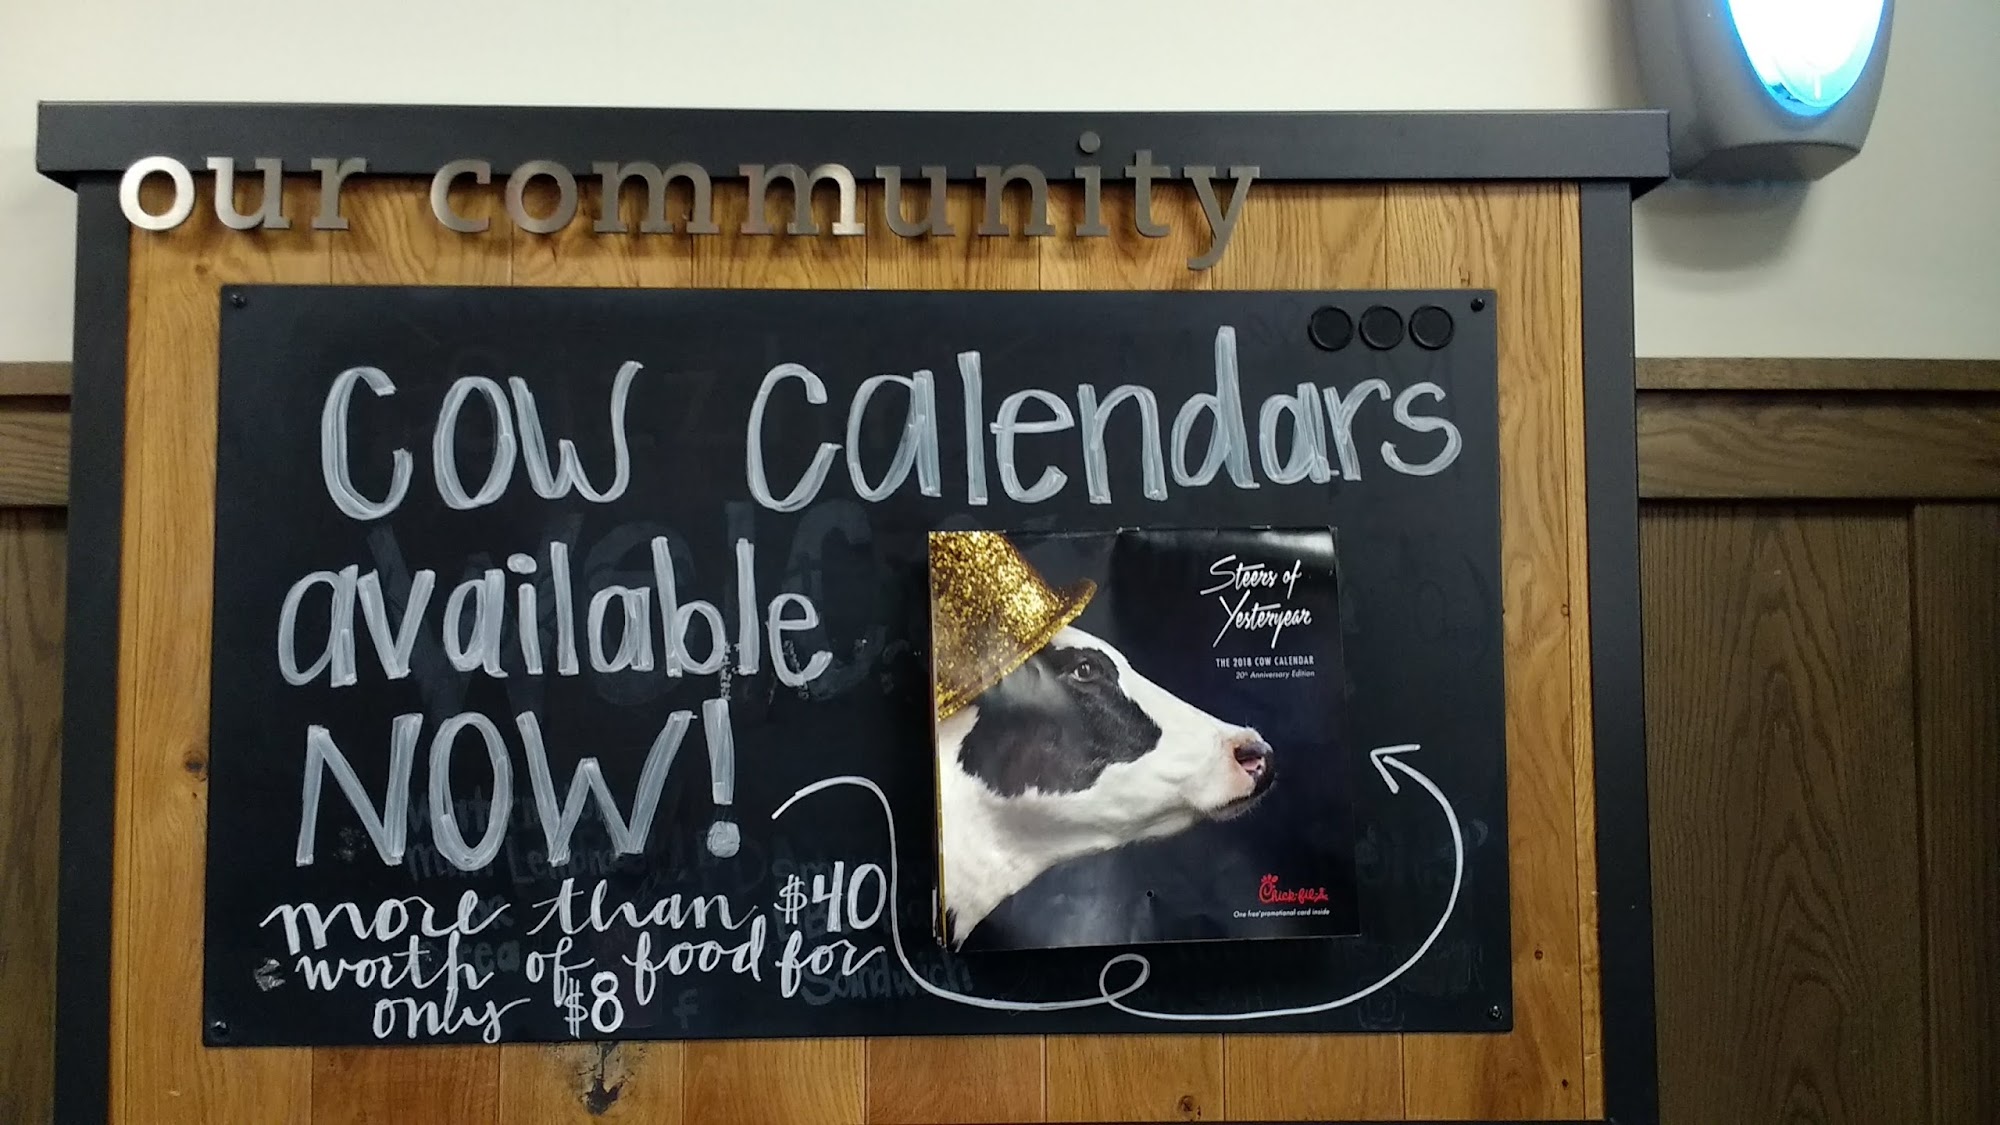 our community
Cow Calendars
available
NOW!
more than $40
worth of food for
only $8
Steers of
Yesteryear
THE 2018 COW CALENDAR
20th Anniversary Edition
Chick-fil-A
One free* promotional card inside